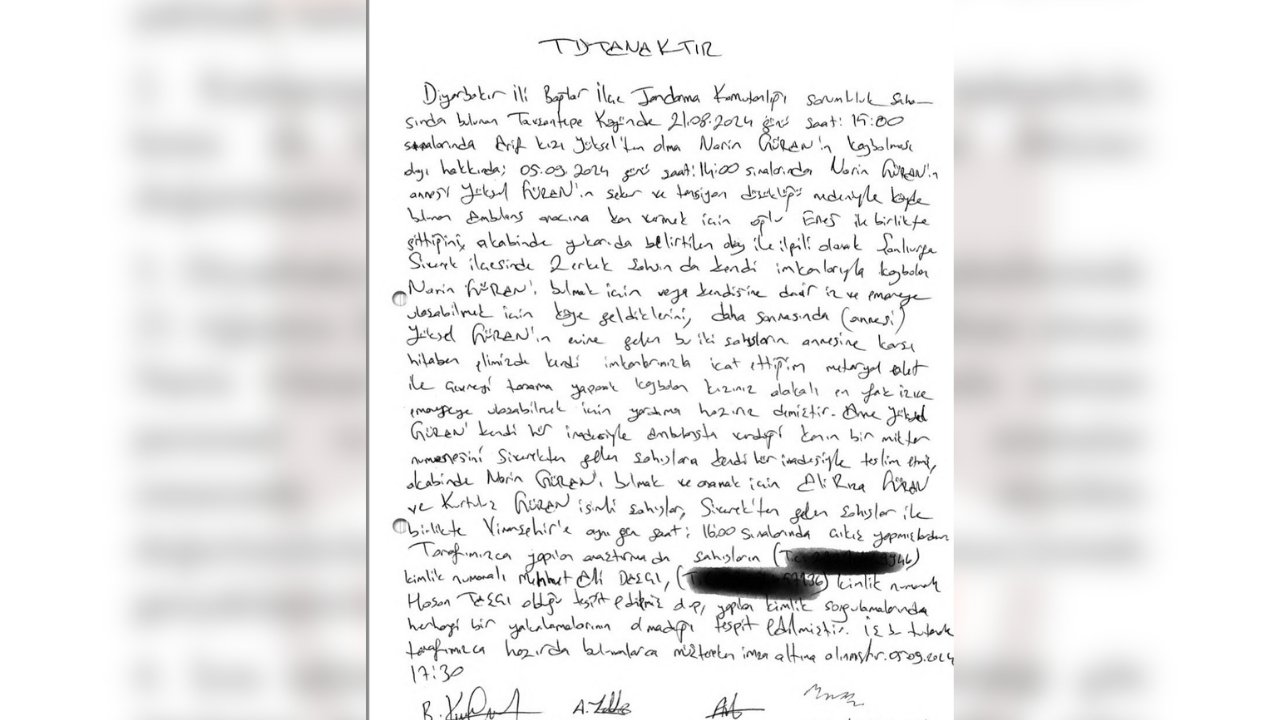 TUTANAKTIR
Diyarbakır İli Bağlar İlçe Jandarma Komutanlığı sorumluluk saha-
sında bulunan Tavşantepe Köyünde 21.08.2024 günü saat: 15:00
sıralarında Arif kızı Yüksel'ten olma Narin GÜRAN'ın kaybolması
olayı hakkında; 05.09.2024 günü saat: 14:00 sıralarında Narin GÜRAN'ın
annesi Yüksel GÜRAN'ın şeker ve tansiyon düşüklüğü nedeniyle köyde
bulunan Ambulans aracına kan vermek için oğlu Enes ile birlikte
gittiğini, akabinde yukarıda belirtilen olay ile ilgili olarak Şanlıurfa
Siverek ilçesinde 2 erkek şahsın da kendi imkanlarıyla kaybolan
Narin GÜRAN'ı bulmak için veya kendisine dair iz ve emareye
ulaşabilmek için köye geldiklerini, daha sonrasında (annesi)
Yüksel GÜRAN'ın evine gelen bu iki şahısların annesine karşı
hitaben elimizde kendi imkanlarımızla icat ettiğim materyal alet
ile çevreyi tarama yaparak kaybolan kızınız alakalı en ufak iz ve
emareye ulaşabilmek için yardıma hazırız demiştir. Anne Yüksel
GÜRAN' kendi hür iradesiyle Ambulansta verdiği kanın bir miktar
numunesini Siverekten gelen şahıslara kendi hür iradesiyle teslim etmiş,
akabinde Narin GÜRAN'ı bulmak ve aramak için Ali Rıza GÜRAN
ve Kurtuluş GÜRAN isimli şahıslar, Siverek'ten gelen şahıslar ile
birlikte Viranşehir'e aynı gün saat: 16:00 sıralarında çıkış yapmışlardır.
Tarafımızca yapılan araştırmada şahısların (T.C.
kimlik numaralı Mehmet Ali kimlik numaralı
Hasan olduğu tespit edilmiş olup, yapılan kimlik sorgulamalarında
herhangi bir yakalamalarının olmadığı tespit edilmiştir. İş bu tutanak
tarafımızca hazırda bulunanlarca müştereken imza altına alınmıştır. 05.09.2024
17:30